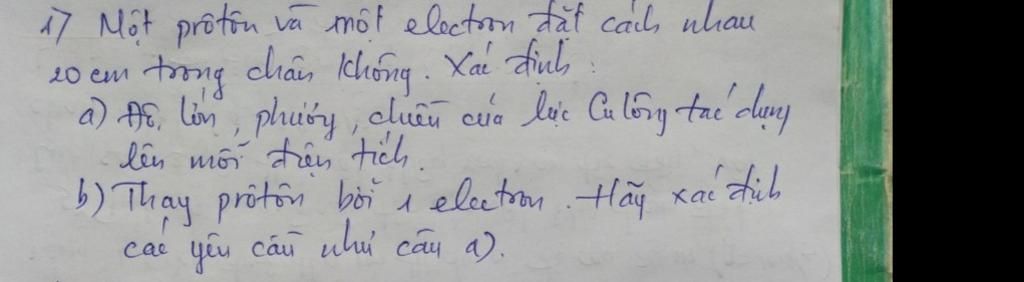 1) Một prôtôn và một electron đặt cách nhau
20 cm trong chân không. Xác định:
a) Độ lớn, phương, chiều của lực Culông tác dụng
lên mỗi điện tích.
b) Thay prôtôn bởi 1 electron. Hãy xác định
các yêu cầu như câu a).